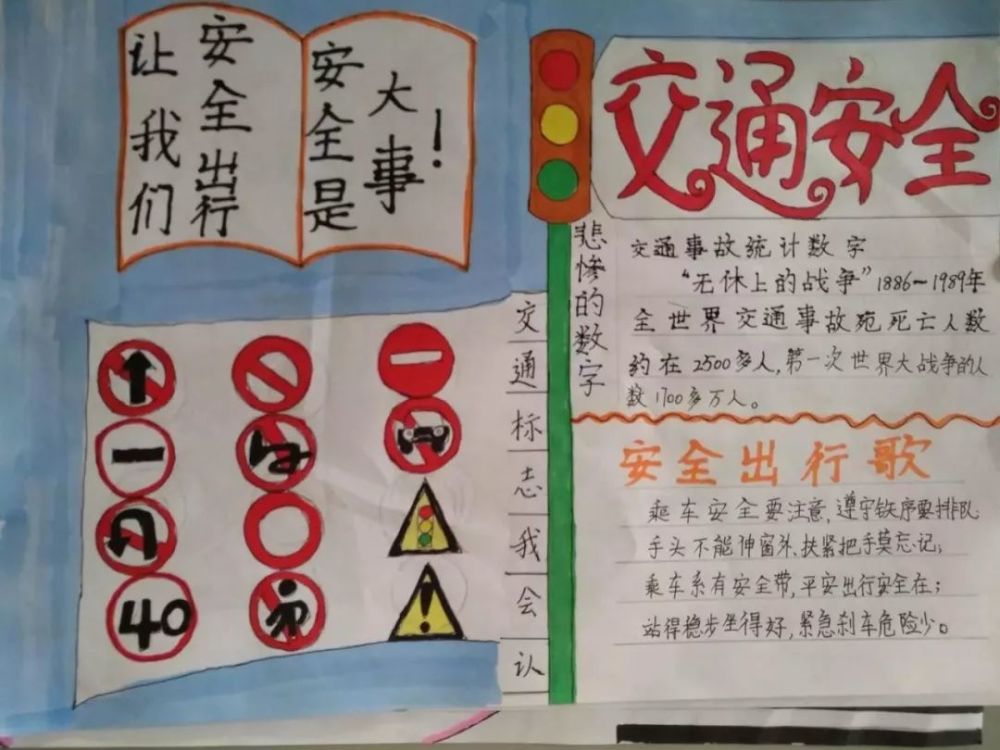 让我们
安全出行
安全是
大事！
交通安全
悲惨的数字
交通事故统计数字
“无休上的战争”1886～1989年
全世界交通事故宛死亡人数
约在2500多人,第一次世界大战争的人
数1700多万人。
安全出行歌
乘车安全要注意,遵守铁序要排队
手头不能伸窗外、扶紧把手莫忘记;
乘车系有安全带,平安出行安全在;
站得稳步坐得好,紧急刹车危险少。
交通标志我会认
40